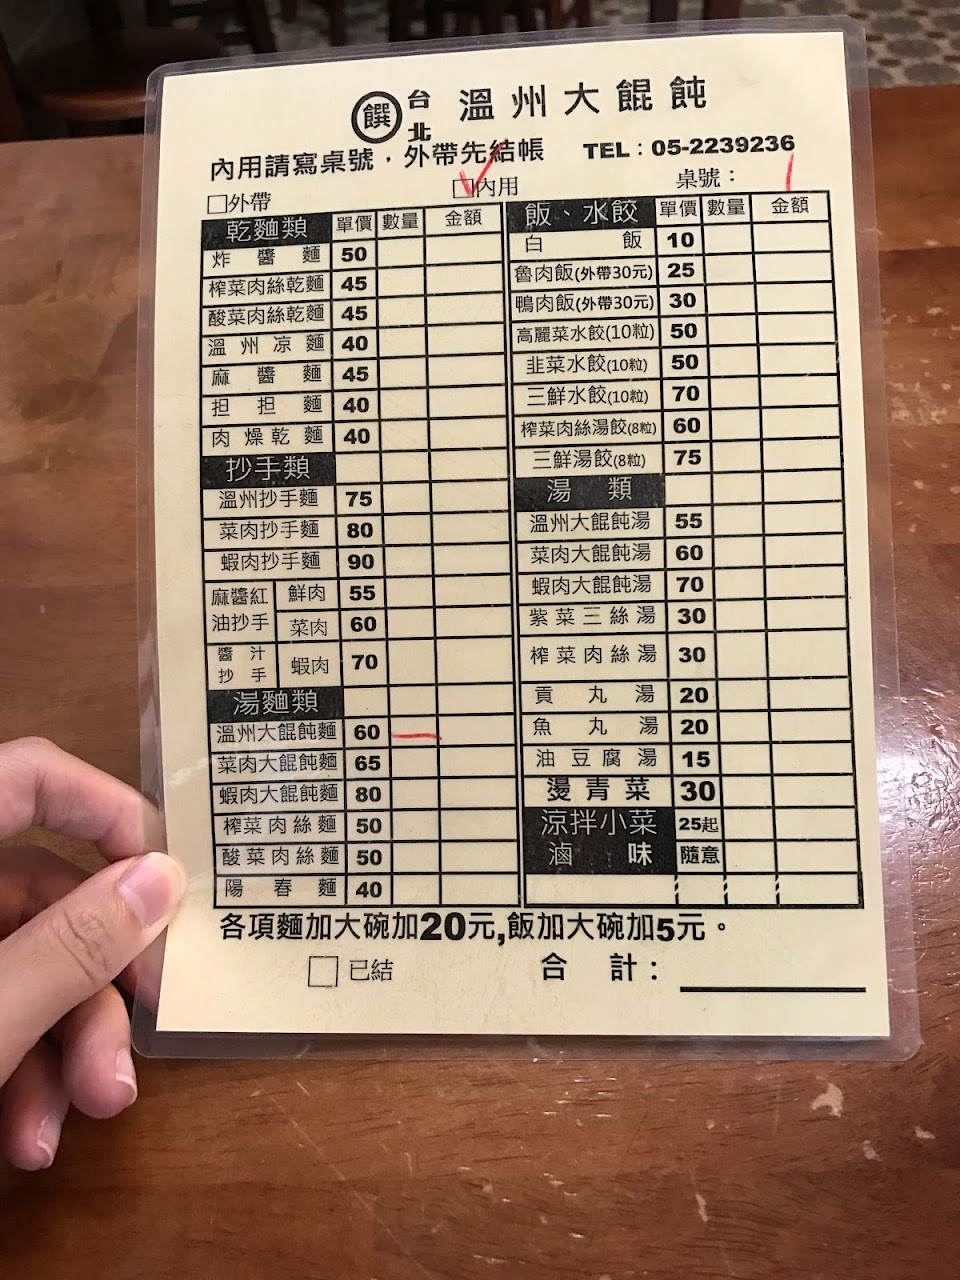 饌 台北 溫州大餛飩
內用請寫桌號,外帶先結帳 TEL:05-2239236
□外帶 □內用 桌號: 1
乾麵類 單價 數量 金額
炸醬麵 50
榨菜肉絲乾麵 45
酸菜肉絲乾麵 45
溫州凉麵 40
麻醬麵 45
担担麵 40
肉燥乾麵 40
抄手類
溫州抄手麵 75
菜肉抄手麵 80
蝦肉抄手麵 90
麻醬紅油抄手 鮮肉 55
菜肉 60
醬汁抄手 蝦肉 70
湯麵類
溫州大餛飩麵 60 一
菜肉大餛飩麵 65
蝦肉大餛飩麵 80
榨菜肉絲麵 50
酸菜肉絲麵 50
陽春麵 40
飯、水餃 單價 數量 金額
白飯 10
魯肉飯(外帶30元) 25
鴨肉飯(外帶30元) 30
高麗菜水餃(10粒) 50
韭菜水餃(10粒) 50
三鮮水餃(10粒) 70
榨菜肉絲湯餃(8粒) 60
三鮮湯餃(8粒) 75
湯類
溫州大餛飩湯 55
菜肉大餛飩湯 60
蝦肉大餛飩湯 70
紫菜三絲湯 30
榨菜肉絲湯 30
貢丸湯 20
魚丸湯 20
油豆腐湯 15
燙青菜 30
涼拌小菜 25起
滷味 隨意
各項麵加大碗加20元,飯加大碗加5元。
□ 已結 合計: